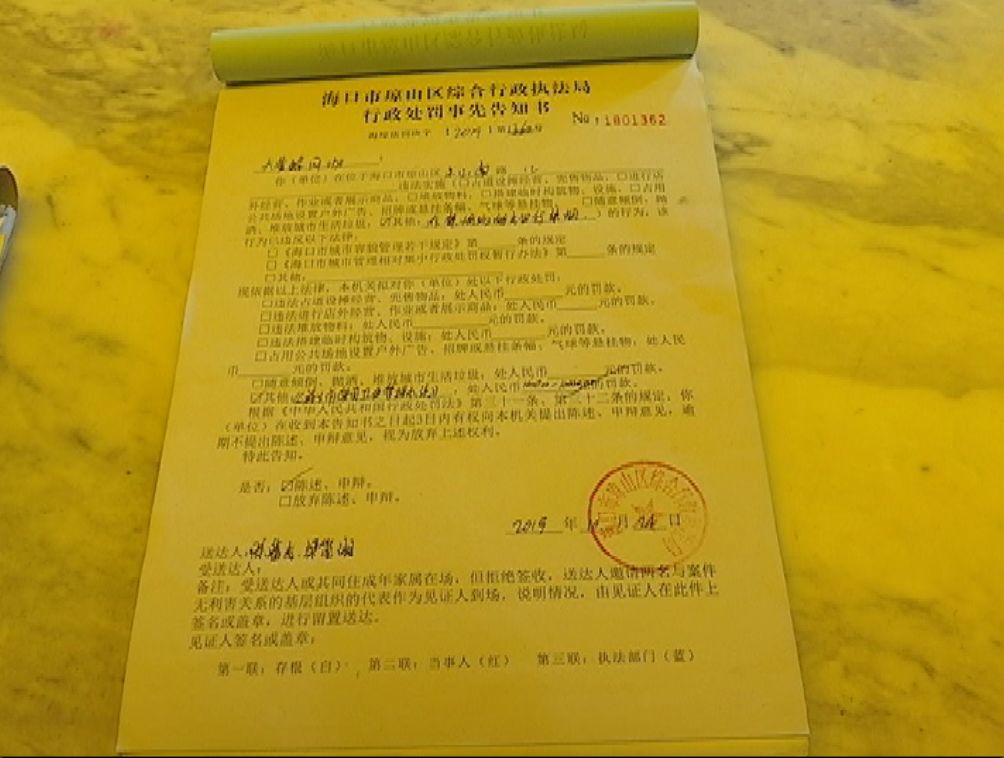 海口市琼山区综合行政执法局
行政处罚事先告知书
No: 1801362
[2019]
你(单位)在位于海口市琼山区 路
违法实施(□占道设摊经营、兜售物品,□进行店
外经营、作业或者展示商品,□堆放物料,□搭建临时构筑物、设施,□占用
公共场地设置户外广告、招牌或悬挂条幅、气球等悬挂物,□随意倾倒、抛
洒、堆放城市生活垃圾,☑其他: )的行为,该
行为已违反以下法律:
□《海口市城市容貌管理若干规定》第____条的规定
□《海口市城市管理相对集中行政处罚权暂行办法》第____条的规定
□其他:
现依据以上法律,本机关拟对你(单位)处以下行政处罚:
□违法占道设摊经营、兜售物品;处人民币____元的罚款。
□违法进行店外经营、作业或者展示商品;处人民币____元的罚款。
□违法堆放物料;处人民币____元的罚款。
□违法搭建临时构筑物、设施;处人民币____元的罚款。
□占用公共场地设置户外广告、招牌或悬挂条幅、气球等悬挂物;处人民
币____元的罚款。
□随意倾倒、抛洒、堆放城市生活垃圾;处人民币____元的罚款。
☑其他 处人民币 的罚款。
根据《中华人民共和国行政处罚法》第三十一条、第三十二条的规定,你
(单位)在收到本告知书之日起3日内有权向本机关提出陈述、申辩意见,逾
期不提出陈述、申辩意见,视为放弃上述权利。
特此告知。
是否:☑陈述、申辩。
□放弃陈述、申辩。
2019 年 月 日
送达人:
受送达人:
备注:受送达人或其同住成年家属在场,但拒绝签收,送达人邀请两名与案件
无利害关系的基层组织的代表作为见证人到场,说明情况,由见证人在此件上
签名或盖章,进行留置送达。
见证人签名或盖章:
第一联:存根(白) 第二联:当事人(红) 第三联:执法部门(蓝)